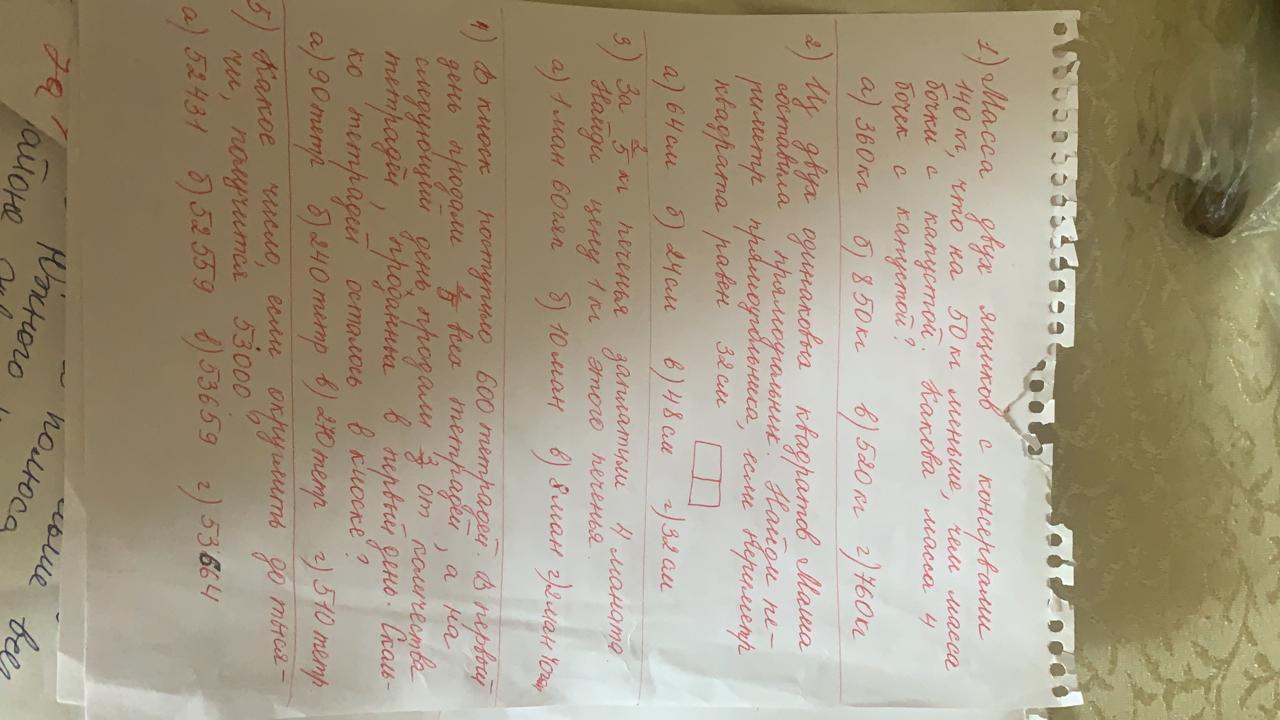 1) Масса двух ящиков с консервами
140 кг, что на 50 кг меньше, чем масса
бочки с капустой. Какова масса 4
бочек с капустой?
а) 360 кг б) 850 кг в) 520 кг г) 760 кг
2) Из двух одинаковых квадратов Мама
составила прямоугольник. Найди пе-
риметр прямоугольника, если периметр
квадрата равен 32 см
а) 64 см б) 24 см в) 48 см г) 32 см
3) За 2/5 кг печенья заплатили 4 маната
Найди цену 1 кг этого печенья.
а) 1 ман 60 гяп б) 10 ман в) 8 ман г) 2 ман 40 гяп
4) В киоск поступило 600 тетрадей. В первый
день продали всех тетрадей, а на
следующий день продали от количества
тетрадей, проданных в первый день. Сколь-
ко тетрадей осталось в киоске?
а) 90 тетр б) 240 тетр в) 270 тетр г) 510 тетр
5) Какое число, если округлить до тыся-
чи, получится 53000?
а) 52431 б) 52559 в) 53659 г) 53664
айоне
Южного
полюса